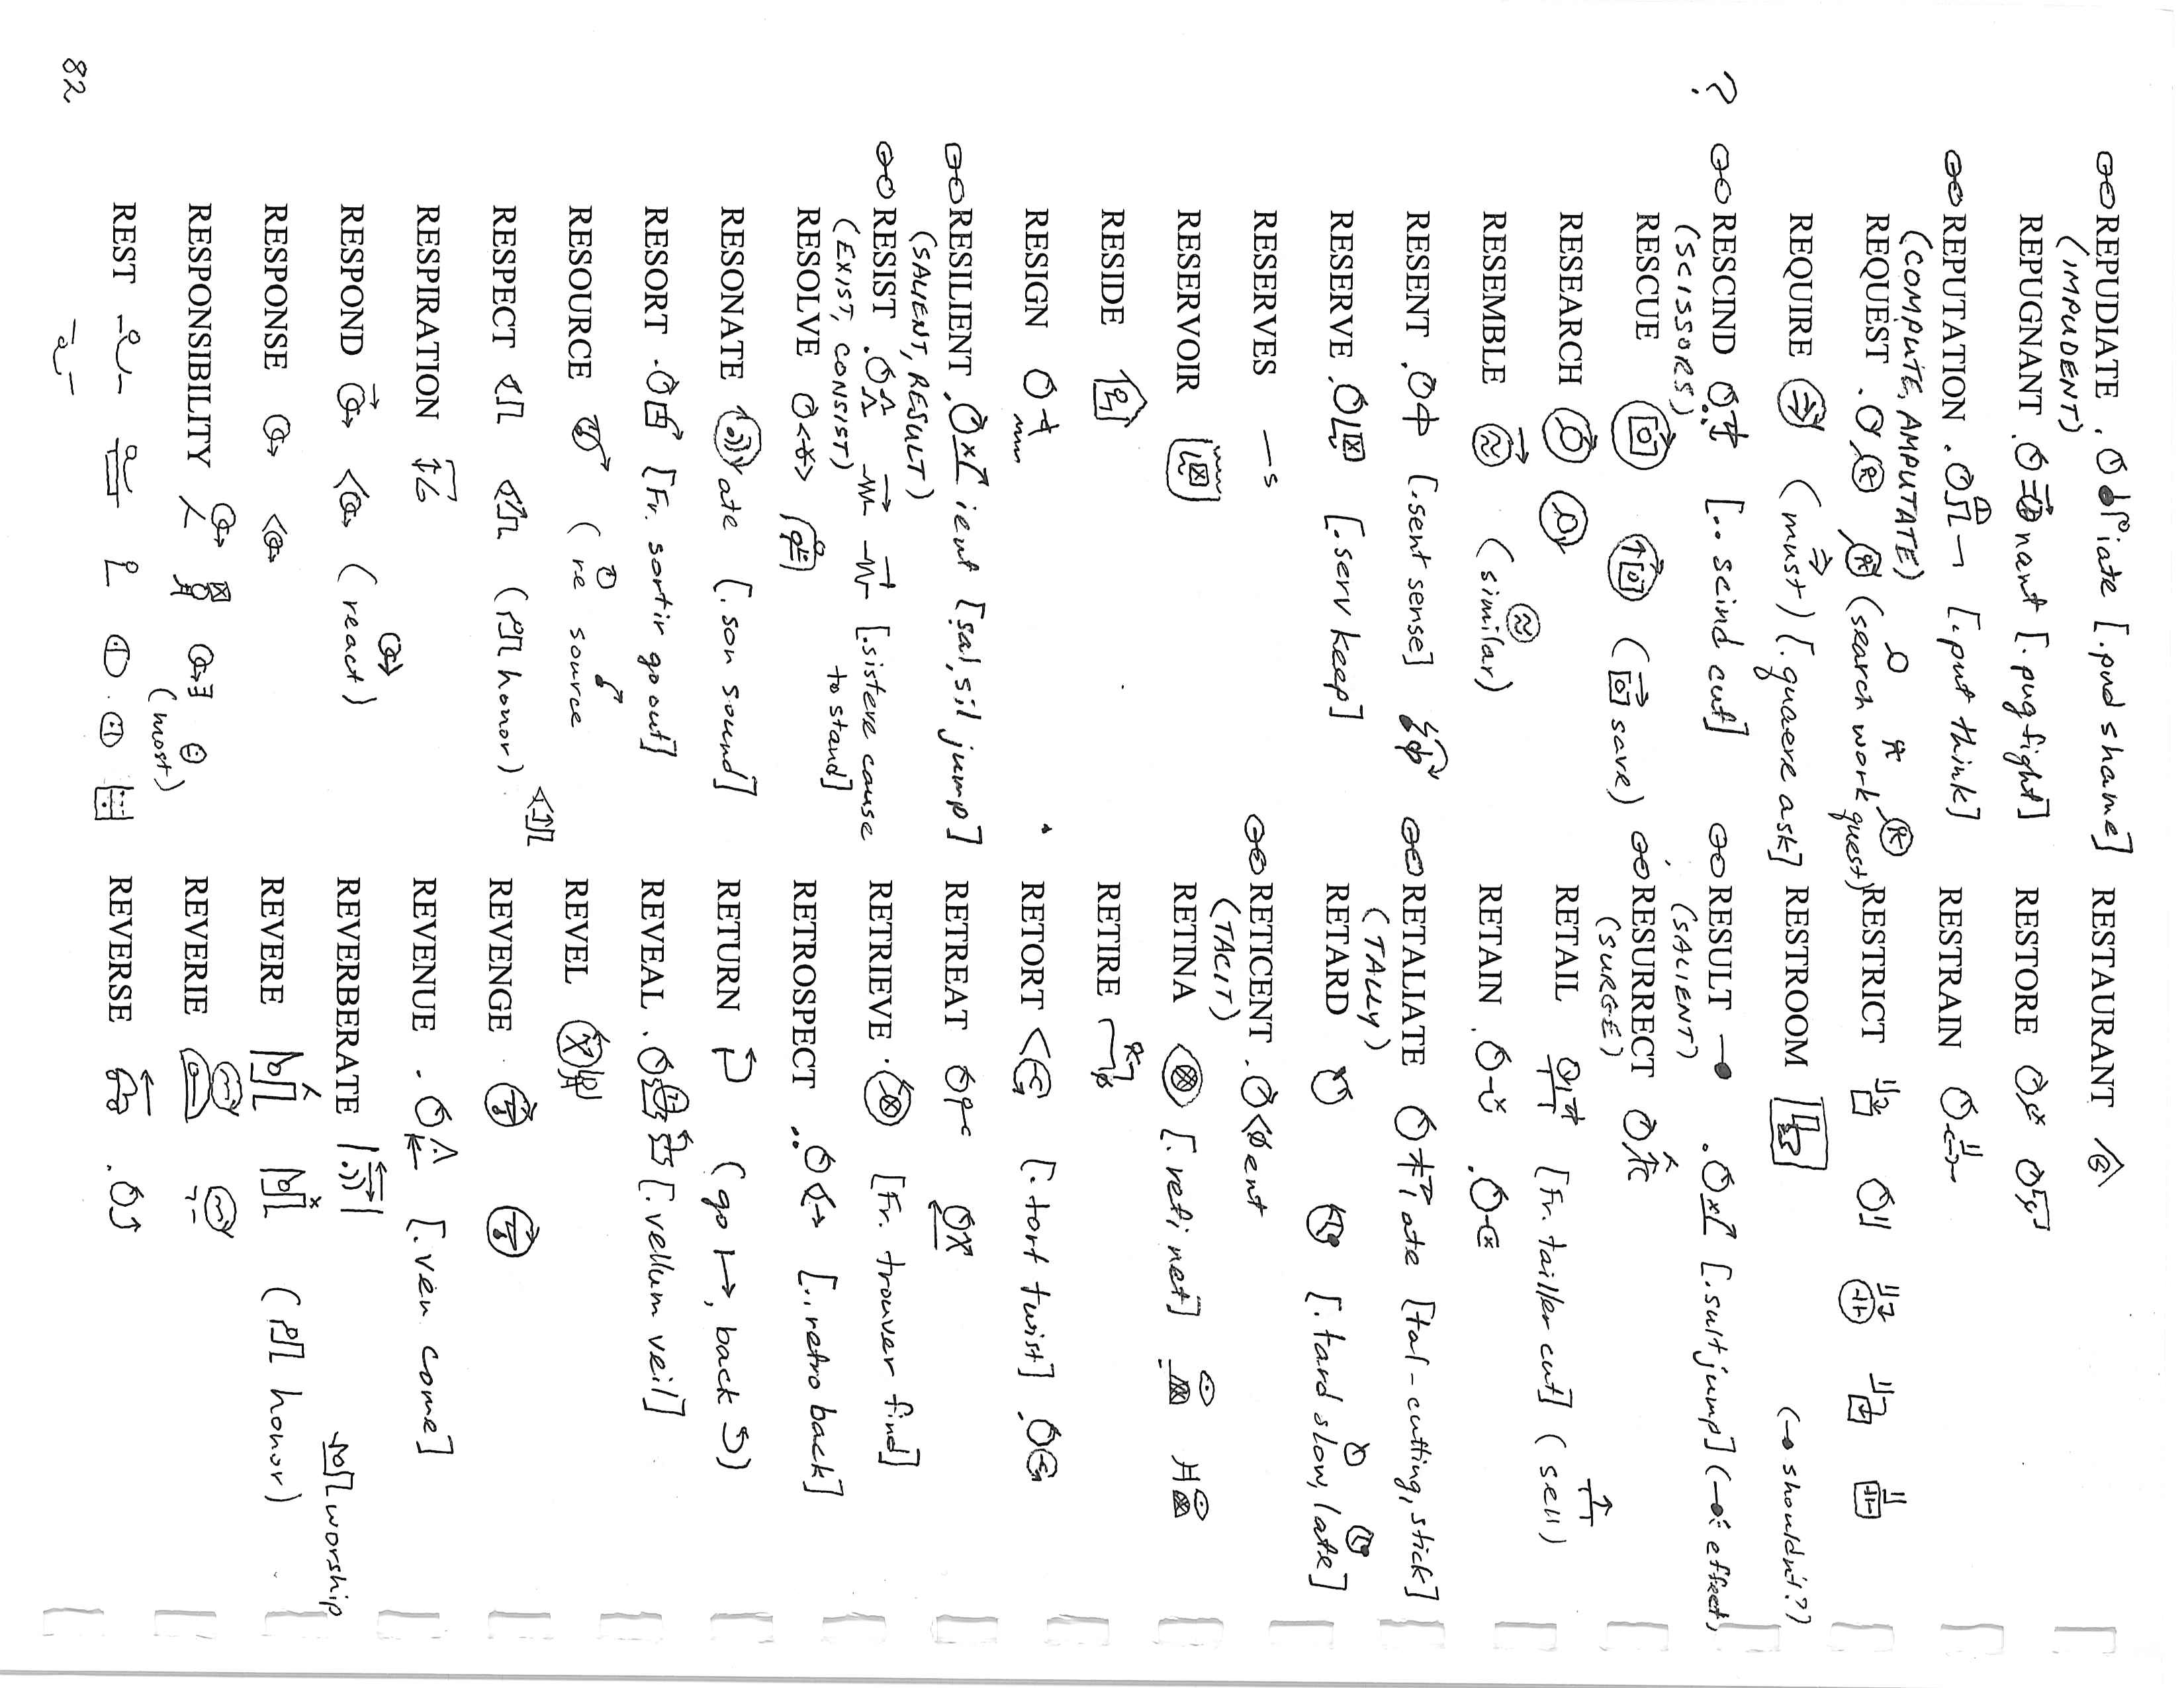 REPUDIATE iate [.pud shame]
(IMPUDENT)
REPUGNANT nant [.pug fight]
REPUTATION [.put think]
(COMPUTE, AMPUTATE)
REQUEST (search work quest)
REQUIRE (must) [.quaere ask]
? RESCIND [.. scind cut]
(SCISSORS)
RESCUE (save)
RESEARCH
RESEMBLE (similar)
RESENT [.sent sense]
RESERVE [.serv keep]
RESERVES —s
RESERVOIR
RESIDE
RESIGN
RESILIENT ient [sal, sil jump]
(SALIENT, RESULT)
RESIST [.sistere cause to stand]
(EXIST, CONSIST)
RESOLVE
RESONATE ate [.son sound]
RESORT [Fr. sortir go out]
RESOURCE (re source)
RESPECT (honor)
RESPIRATION
RESPOND (react)
RESPONSE
RESPONSIBILITY (most)
REST
RESTAURANT
RESTORE
RESTRAIN
RESTRICT
RESTROOM (shouldn't?)
RESULT [.sult jump] (effect)
(SALIENT)
RESURRECT
(SURGE)
RETAIL [Fr. tailler cut] (sell)
RETAIN
RETALIATE ate [tal - cutting, stick]
(TALLY)
RETARD [.tard slow, late]
RETICENT ent
(TACIT)
RETINA [.reti net]
RETIRE
RETORT [.tort twist]
RETREAT
RETRIEVE [Fr. trouver find]
RETROSPECT [..retro back]
RETURN (go, back)
REVEAL [.vellum veil]
REVEL
REVENGE
REVENUE [.ven come]
REVERBERATE worship
REVERE (honor)
REVERIE
REVERSE
82